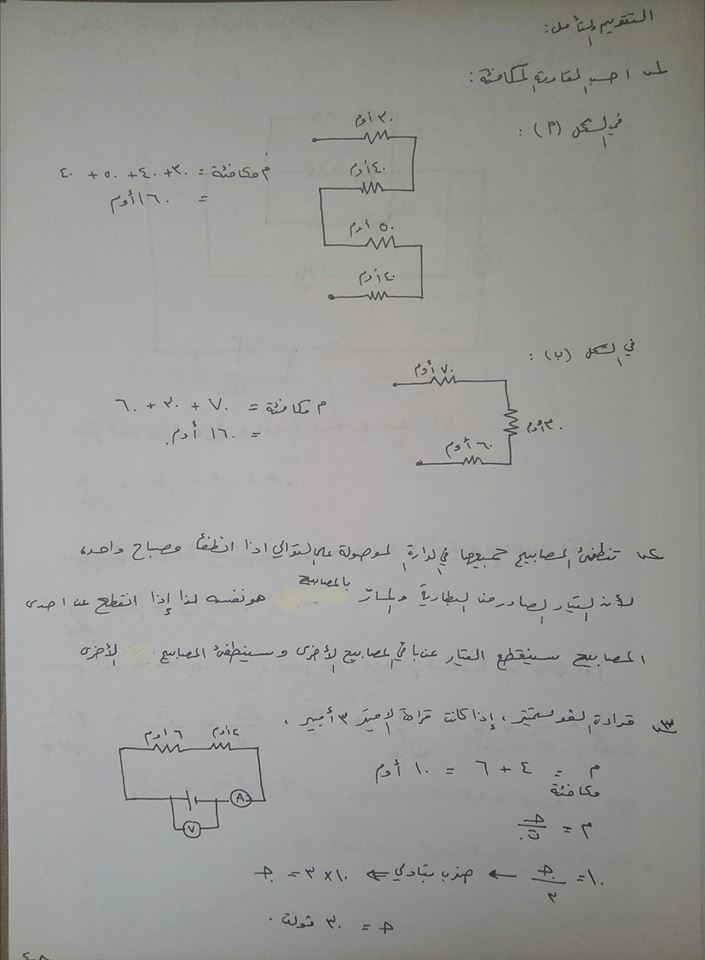 التقويم والتأمل:
س١ احسب المقاومة المكافئة:
في الشكل (٢) :
٣٠ أوم
٤٠ أوم
٥٠ أوم
٤٠ أوم
م مكافئة = ٣٠ + ٤٠ + ٥٠ + ٤٠
= ١٦٠ أوم
في الشكل (ب) :
٧٠ أوم
٣٠ أوم
٦٠ أوم
م مكافئة = ٧٠ + ٣٠ + ٦٠
= ١٦٠ أوم.
س٢ تنطفئ المصابيح جميعها في الدارة الموصولة على التوالي اذا انطفأ مصباح واحد،
لأن التيار الصادر من البطارية والمارّ بالمصابيح هو نفسه لذا إذا انقطع عن احدى
المصابيح سينقطع التيار عن باقي المصابيح الأخرى وسينطفئ المصابيح الأخرى
س٣ قراءة الفولتميتر، إذا كانت قراءة الاميتر ٣ أمبير .
٦ أوم
A
V
م مكافئة = ٤ + ٦ = ١٠ أوم
م = جـ / ت
١٠ = جـ / ٣ ← ضرب تبادلي ⇐ ١٠ × ٣ = جـ
جـ = ٣٠ فولت .